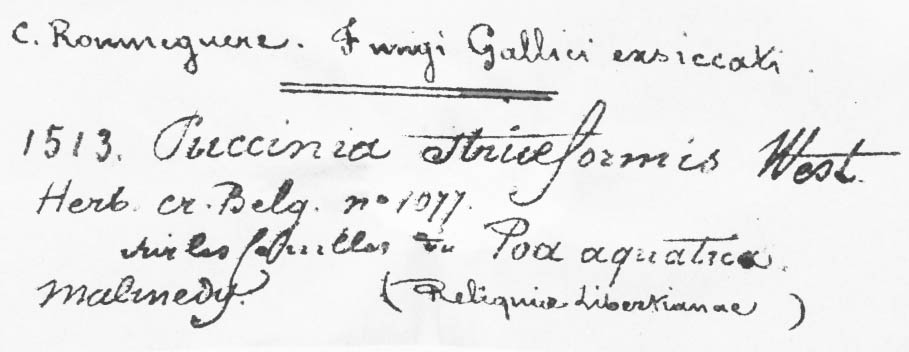 C. Roumeguere. Fungi Gallici exsiccati.
1513. Puccinia striaeformis West.
Herb. cr. Belg. no 1077.
sur les feuilles du Poa aquatica.
Malmedy. (Reliquiae Libertianae)